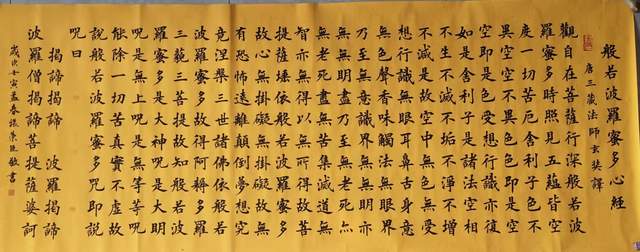 般若波羅蜜多心經
唐三藏法師玄奘譯
觀自在菩薩行深般若波
羅蜜多時照見五蘊皆空
度一切苦厄舍利子色不
異空空不異色色即是空
空即是色受想行識亦復
如是舍利子是諸法空相
不生不滅不垢不淨不增
不減是故空中無色無受
想行識無眼耳鼻舌身意
無色聲香味觸法無眼界
乃至無意識界無無明亦
無無明盡乃至無老死亦
無老死盡無苦集滅道無
智亦無得以無所得故菩
提薩埵依般若波羅蜜多
故心無掛礙無掛礙故無
有恐怖遠離顛倒夢想究
竟涅槃三世諸佛依般若
波羅蜜多故得阿耨多羅
三藐三菩提故知般若波
羅蜜多是大神呪是大明
呪是無上呪是無等等呪
能除一切苦真實不虛故
說般若波羅蜜多呪即說
呪曰
揭諦揭諦 波羅揭諦
波羅僧揭諦菩提薩婆訶
歲次壬寅孟春張敬書